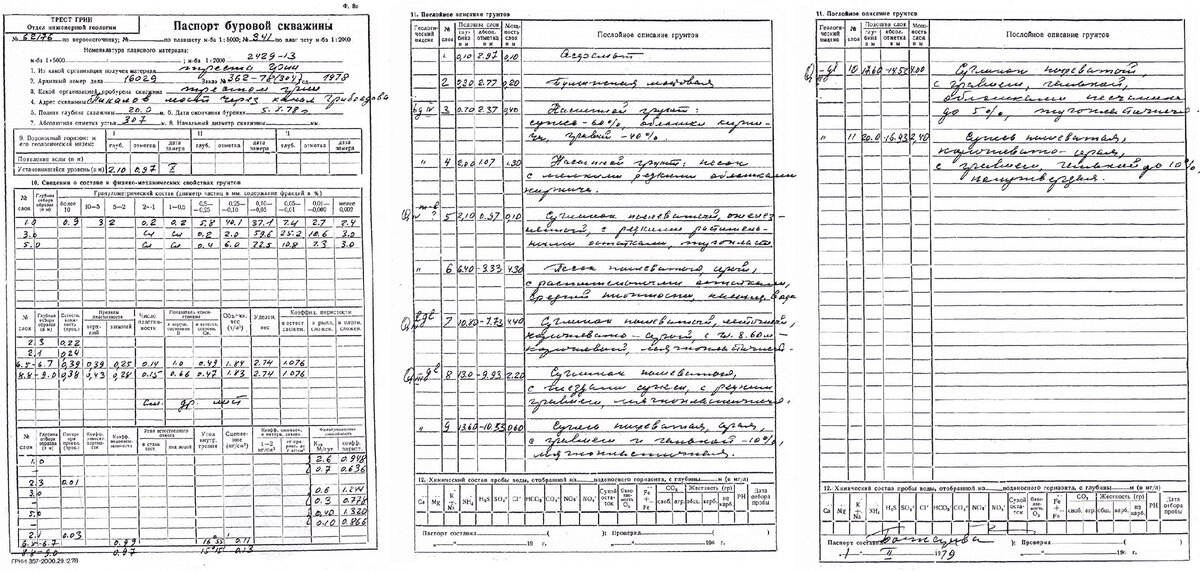 Ф. 8с
ТРЕСТ ГРИИ
Отдел инженерной геологии
Паспорт буровой скважины
№ 62176 по первоисточнику; № по планшету м-ба 1:5000; № 341 по планшету м-ба 1:2000
Номенклатура планового материала:
м-ба 1:5000 ; м-ба 1:2000 2429-13
1. Из какой организации получен материал треста ГРИИ
2. Архивный номер дела 16029 Заказ № 362-78(304) год 1978
3. Какой организацией пробурена скважина трестом ГРИИ
4. Адрес скважины Пикалов мост через канал Грибоедова
5. Полная глубина скважины 20.0 м. 6. Дата окончания бурения 5.X.78 г.
7. Абсолютная отметка устья 3.07 м. 8. Начальный диаметр скважины мм.
9. Водоносный горизонт и его геологический индекс
I II
глуб. отметка дата замера глуб. отметка дата замера глуб. отметка дата замера
Появление воды (в м)
Установившийся уровень (в м) 2,10 0,97 X
10. Сведения о составе и физико-механических свойствах грунтов
№ слоя Глубина отбора образца (в м) Гранулометрический состав (диаметр частиц в мм, содержание фракций в %)
более 10 10—5 5—2 2—1 1—0,5 0,5—0,25 0,25—0,10 0,10—0,05 0,05—0,01 0,01—0,002 менее 0,002
1.0 0.9 3.2 0.2 0.2 5.8 40.1 37.1 7.4 2.7 2.4
3.0 Сл 0.2 2.0 59.6 25.2 10.6 3.0
5.0 Сл Сл 0.4 6.0 72.5 10.8 7.3 3.0
№ слоя Глубина отбора образца (в м) Естеств. влажность (проц.) Пределы пластичности верхний нижний Число пластичности Показатель консистенции Объемн. вес (т/м³) Удельн. вес Коэффиц. пористости в естест. сложен. в рыхл. сложен. в плотн. сложен.
2.3 0.22
2.1 0.24
6.5-6.7 0,39 0,39 0,25 0.14 1.0 0.49 1.84 2.74 1.076
8.8-9.0 0,38 0,43 0,28 0.15 0.66 0.47 1.83 2.74 1.076
См. др. лист
№ слоя Глубина отбора образца (в м) Угол естественного откоса в сухом сост. под водой Угол внутр. трения Сцепление (кг/см²)
1.0 2.6 0.948
— 0.7 0.636
2.3 0.01
3.0 0.6 1.244
— 0.3 0.778
5.0 0.40 1.320
— 0.10 0.866
2.1 0.03
6.5-6.7 0.99 16°35' 0.11
8.8-9.0 0.97 15°15' 0.13
ГРИИ 357-2000.29.12.78
11. Послойное описание грунтов
Геологический индекс № слоя Подошва слоя глубина в м абсол. отметка в м Мощность слоя в м Послойное описание грунтов
1 0,10 2.97 0,10 Асфальт
2 0.30 2.77 0.20 Булыжная мостовая
3 0.70 2.37 0,40 Насыпной грунт:
супесь-60%, обломки кирпи-
ча, гравий -40%
" 4 2.00 1.07 1.30 Насыпной грунт: песок
с мелкими редкими обломками
кирпича.
5 2,10 0.97 0,10 Суглинок пылеватый, ожелез-
ненный, с редкими раститель-
ными остатками, тугопласт.
" 6 6.40 -3.33 4.30 Песок пылеватый, серый,
с растительными остатками,
средней плотности, насыщ. вода
7 10.80 -7.73 4.40 Суглинок пылеватый, ленточный,
коричневато-серый, с гл. 8.60м-
коричневый, мягкопластичный.
8 13.0 -9.93 2.20 Суглинок пылеватый,
с гнездами супеси, с редким
гравием, мягкопластичный.
" 9 13.60 -10.53 0,60 Супесь пылеватая, серая,
с гравием и галькой -10%,
мягкопластичная.
12. Химический состав пробы воды, отобранной из водоносного горизонта, с глубины м (в мг/л)
Ca Mg K + Na NH₄ H₂S SO₄″ Cl′ HCO₃′ CO₃″ NO₃′ NO₂′ Сухой остаток Окисляемость O₂ Fe·· + Fe··· CO₂ своб. агр. Жесткость (гр) общ. карб. не карб. PH Дата отбора пробы
Паспорт составил ( ); Проверил ( )
" " 196 г. " " 196 г.
11. Послойное описание грунтов
Геологический индекс № слоя Подошва слоя глубина в м абсол. отметка в м Мощность слоя в м Послойное описание грунтов
10 17.60 -14.53 4.00 Суглинок пылеватый,
с гравием, галькой,
обломками песчаника
до 5%, тугопластичный.
" 11 20.0 -16.93 2,40 Супесь пылеватая,
коричневато-серая,
с гравием, галькой до 10%,
полутвердая.
12. Химический состав пробы воды, отобранной из водоносного горизонта, с глубины м (в мг/л)
Ca Mg K + Na NH₄ H₂S SO₄″ Cl′ HCO₃′ CO₃″ NO₃′ NO₂′ Сухой остаток Окисляемость O₂ Fe·· + Fe··· CO₂ своб. агр. Жесткость (гр) общ. карб. не карб. PH Дата отбора пробы
Паспорт составил ( ); Проверил ( )
" 1 " II 1979 " " 196 г.